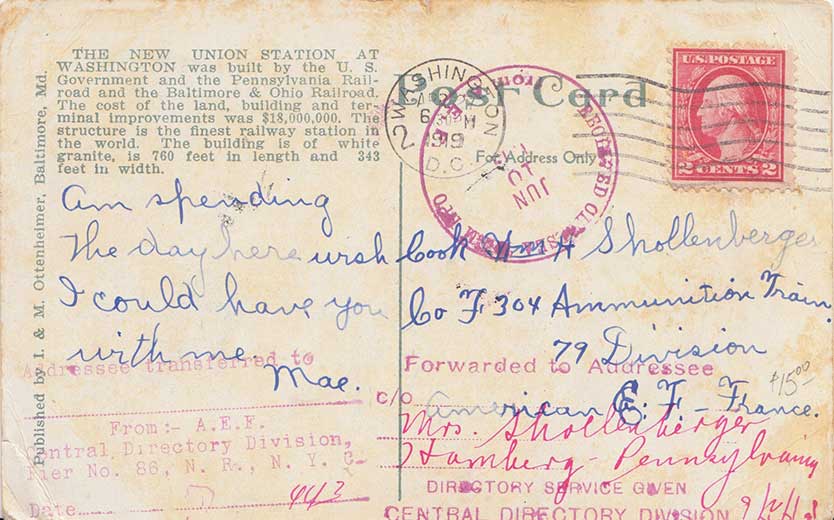 THE NEW UNION STATION AT
WASHINGTON was built by the U. S.
Government and the Pennsylvania Rail-
road and the Baltimore & Ohio Railroad.
The cost of the land, building and ter-
minal improvements was $18,000,000. The
structure is the finest railway station in
the world. The building is of white
granite, is 760 feet in length and 343
feet in width.
Published by I. & M. Ottenheimer, Baltimore, Md.
Post Card
For Address Only
WASHINGTON
2
6
1919
D.C.
JUN
10
U.S. POSTAGE
2 CENTS 2
Am spending
the day here wish
I could have you
with me.
Mae.
Cook Wm H Shollenberger
Co F 304 Ammunition Train.
79 Division
American E. F. - France.
$15.00
Addressee transferred to
From:- A.E.F.
Central Directory Division,
Pier No. 86, N. R., N. Y. C.
Date
443
Forwarded to Addressee
c/o
Mrs. Shollenberger
Hamberg - Pennsylvania
DIRECTORY SERVICE GIVEN
CENTRAL DIRECTORY DIVISION